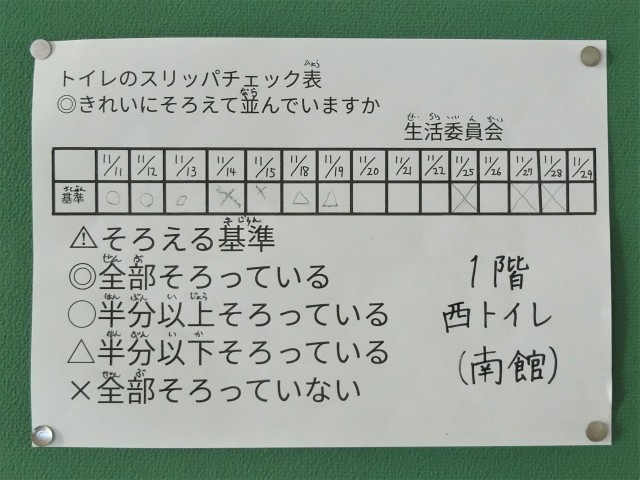 トイレのスリッパチェック表
◎きれいにそろえて並んでいますか
生活委員会
11/11 11/12 11/13 11/14 11/15 11/18 11/19 11/20 11/21 11/22 11/25 11/26 11/27 11/28 11/29
基準 ○ ○ ○ × × △ △ × × ×
⚠そろえる基準
◎全部そろっている
○半分以上そろっている
△半分以下そろっている
×全部そろっていない
1階
西トイレ
(南館)